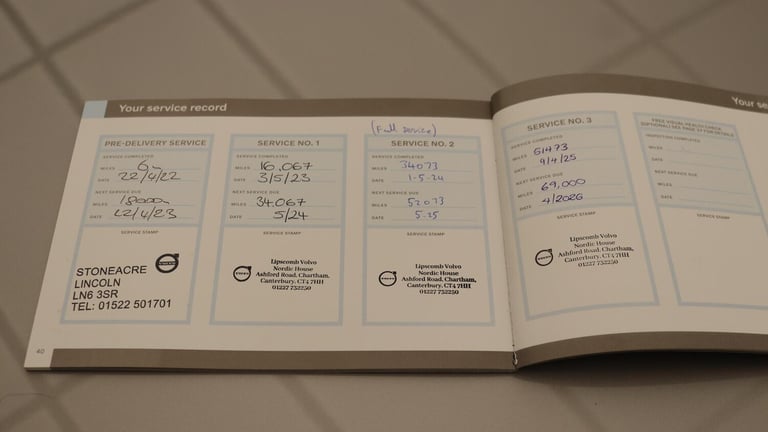 Your service record
Your se
PRE-DELIVERY SERVICE
SERVICE COMPLETED
MILES 6
DATE 22/4/22
NEXT SERVICE DUE
MILES 18000
DATE 22/4/23
SERVICE STAMP
STONEACRE
LINCOLN
LN6 3SR
TEL: 01522 501701
SERVICE NO. 1
SERVICE COMPLETED
MILES 16,067
DATE 3/5/23
NEXT SERVICE DUE
MILES 34,067
DATE 5/24
SERVICE STAMP
Lipscomb Volvo
Nordic House
Ashford Road, Chartham,
Canterbury, CT4 7HH
01227 732250
(Full service)
SERVICE NO. 2
SERVICE COMPLETED
MILES 34073
DATE 1-5-24
NEXT SERVICE DUE
MILES 52073
DATE 5-25
SERVICE STAMP
Lipscomb Volvo
Nordic House
Ashford Road, Chartham,
Canterbury, CT4 7HH
01227 732250
SERVICE NO. 3
SERVICE COMPLETED
MILES 51473
DATE 9/4/25
NEXT SERVICE DUE
MILES 69,000
DATE 4/2026
SERVICE STAMP
Lipscomb Volvo
Nordic House
Ashford Road, Chartham,
Canterbury, CT4 7HH
01227 732250
FREE VISUAL HEALTH CHECK
(OPTIONAL) SEE PAGE 37 FOR DETAILS
INSPECTION COMPLETED
MILES
DATE
MILES
DATE
SERVICE STAMP
40